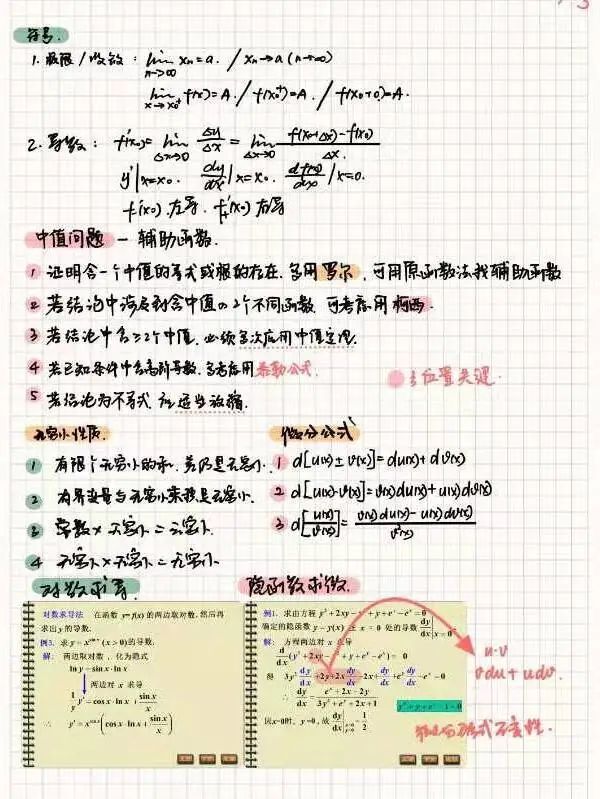 符号.
1. 极限/收敛: lim n->∞ xn=a. / xn→a (n→∞)
lim x→x0⁺ f(x)=A. / f(x0⁺)=A. / f(x0+0)=A.
2. 导数: f'(x0)= lim Δx→0 Δy/Δx = lim Δx→0 (f(x0+Δx)-f(x0))/Δx.
y'|x=x0. dy/dx|x=x0. df(x)/dx|x=0.
f-'(x0).左导. f+'(x0)右导
中值问题 — 辅助函数.
1 证明含一个中值的等式或根的存在,多用罗尔,可用原函数法找辅助函数
2 若结论中涉及到含中值の2个不同函数,可考虑用柯西.
3 若结论中含≥2个中值,必须多次应用中值定理.
4 若已知条件中含高阶导数,多考虑用泰勒公式.
ξ位置关键.
5 若结论为不等式,注适当放缩.
无穷小性质.
1 有限个无穷小的和,差仍是无穷小.
2 有界变量与无穷小乘积是无穷小.
3 常数×无穷小=无穷小.
4 无穷小×无穷小=无穷小
微分公式
1 d[u(x)±v(x)]=du(x)+dv(x)
2 d[u(x)·v(x)]=v(x)du(x)+u(x)dv(x)
3 d[u(x)/v(x)]= (v(x)du(x)-u(x)dv(x))/v²(x)
对数求导
对数求导法 在函数 y=f(x) 的两边取对数,然后再
求出 y 的导数.
例3. 求 y=x^(sin x) (x>0)的导数.
解: 两边取对数,化为隐式
ln y=sin x·ln x
两边对 x 求导
1/y y'=cos x·ln x+sin x/x
∴ y'=x^(sin x)(cos x·ln x+sin x/x)
隐函数求微.
例1. 求由方程 y³+2xy-x²+y+e^y-e^x=0
确定的隐函数 y=y(x) 在 x=0 处的导数 dy/dx|x=0.
解: 方程两边对 x 求导
d/dx(y³+2xy-x²+y+e^y-e^x)=0
得 3y² dy/dx+2y+2x dy/dx-2x+dy/dx+e^y dy/dx-e^x=0
∴ dy/dx=(e^x+2x-2y)/(3y²+e^y+2x+1)
y³+y+e^y-1=0
因x=0时, y=0,故 dy/dx|x=0 = 1/2
u·v
vdu+udv.
形式不变性.